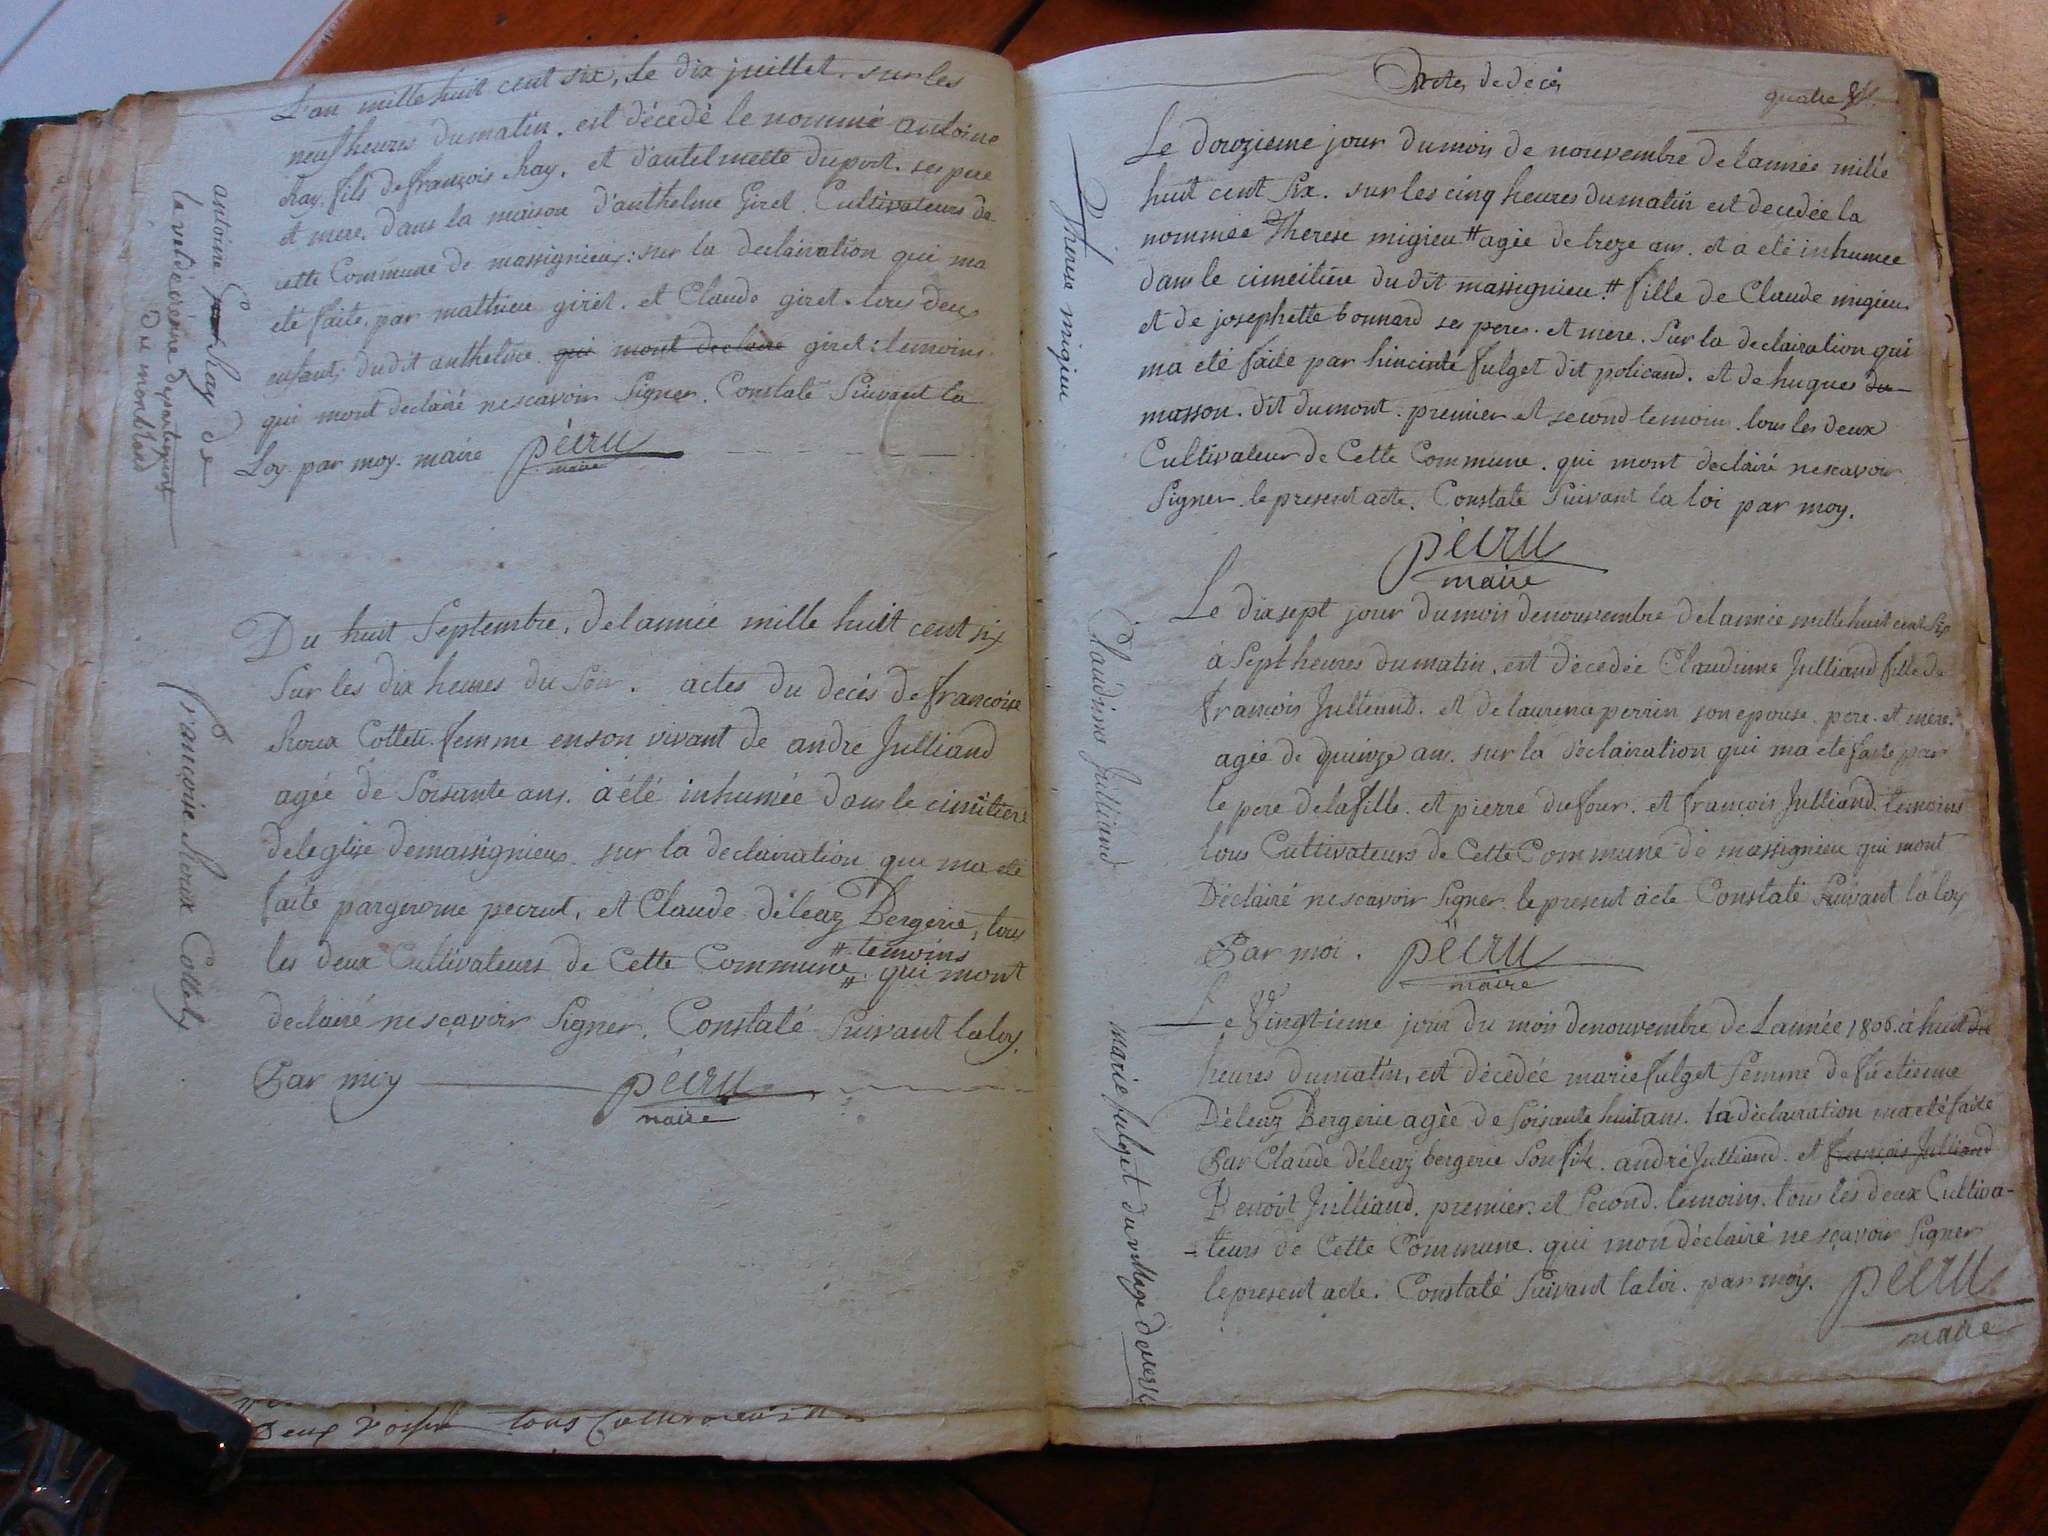 L'an mille huit cent six, le dix juillet. sur les
neuf heures du matin. est décedé le nommé antoine
ray. fils de françois ray. et d'antelmette duport. ses pere
et mere. dans la maison d'anthelme Giret. Cultivateurs de
cette Commune de massignieu: sur la declairation qui ma
eté faite, par mathieu giret. et Claude giret. tous deux
enfants du dit anthelme qui mont declaire giret: temoins
qui mont declairé nescavoir Signer. Constaté Suivant la
Loy. par moy. maire pécru
maire
antoine ray de
du montblanc
Du huit Septembre, de lannée mille huit cent six
Sur les dix heures du Soir. actes du decés de francoise
Roux Collety. femme en son vivant de andré Julliand
agée de Soisante ans. a été inhumée dans le cimitiere
de leglise de massignieu. sur la declairation que ma eté
faite par gerome pecrut, et Claude déleaz Bergerie, tous
les deux Cultivateurs de Cette Commune # # temoins qui mont
declairé nesçavoir Signer. Constaté Suivant la loy.
Par moy pécru
maire
francoise Roux Collety
Deux tous
Actes de decés
quatre
Le douzieme jour du mois de nouvembre de lannée mille
huit cent Six. sur les cinq heures du matin est decedée la
nommée Therese migieu # agée de treze ans. et a eté inhumée
dans le cimeitiere du dit massignieu. # fille de Claude migieu
et de josephette bonnard ses peres et mere. Sur la declairation qui
ma eté faite par hincinte fulget dit policand. et de hugues du
masson. dit dumont. premier et second temoins. tous les deux
Cultivateur de Cette Commune. qui mont declairé nescavoir
Signer. le present acte. Constaté Suivant la loi par moy.
pécru
maire
Therese migieu
Le dixsept jour du mois de nouvembre de lannée mille huit cent Six
à Sept heures du matin, est décedée Claudinne Julliand fille de
François Julliand. et de laurena perrin son epouse. pere et mere.
agée de quinze ans. sur la déclairation qui ma eté faite par
le pere de la fille. et pierre dufour. et françois Julliand. temoins
tous Cultivateurs de Cette Commune de massignieu qui mont
Déclairé nescavoir Signer. le present acte Constaté Suivant la loy
Par moi. pécru
maire
Claudinne Julliand
Le Vingtieme jour du mois de nouvembre de Lannée 1806. à huit
heures du matin, est décedée marie fulget femme de fu etienne
Déleaz Bergerie agèe de Soisante huit ans. la déclairation ma eté faite
Par Claude déleaz bergerie Son fils. andré Julliand. et françois Julliand
Benoit Julliand. premier. et Second. temoins. tous les deux Cultiva-
-teurs de Cette Commune. qui mon déclairé ne sçavoir Signer
le present acte. Constaté Suivant la loi. par moy. pécru
maire
marie fulget du village